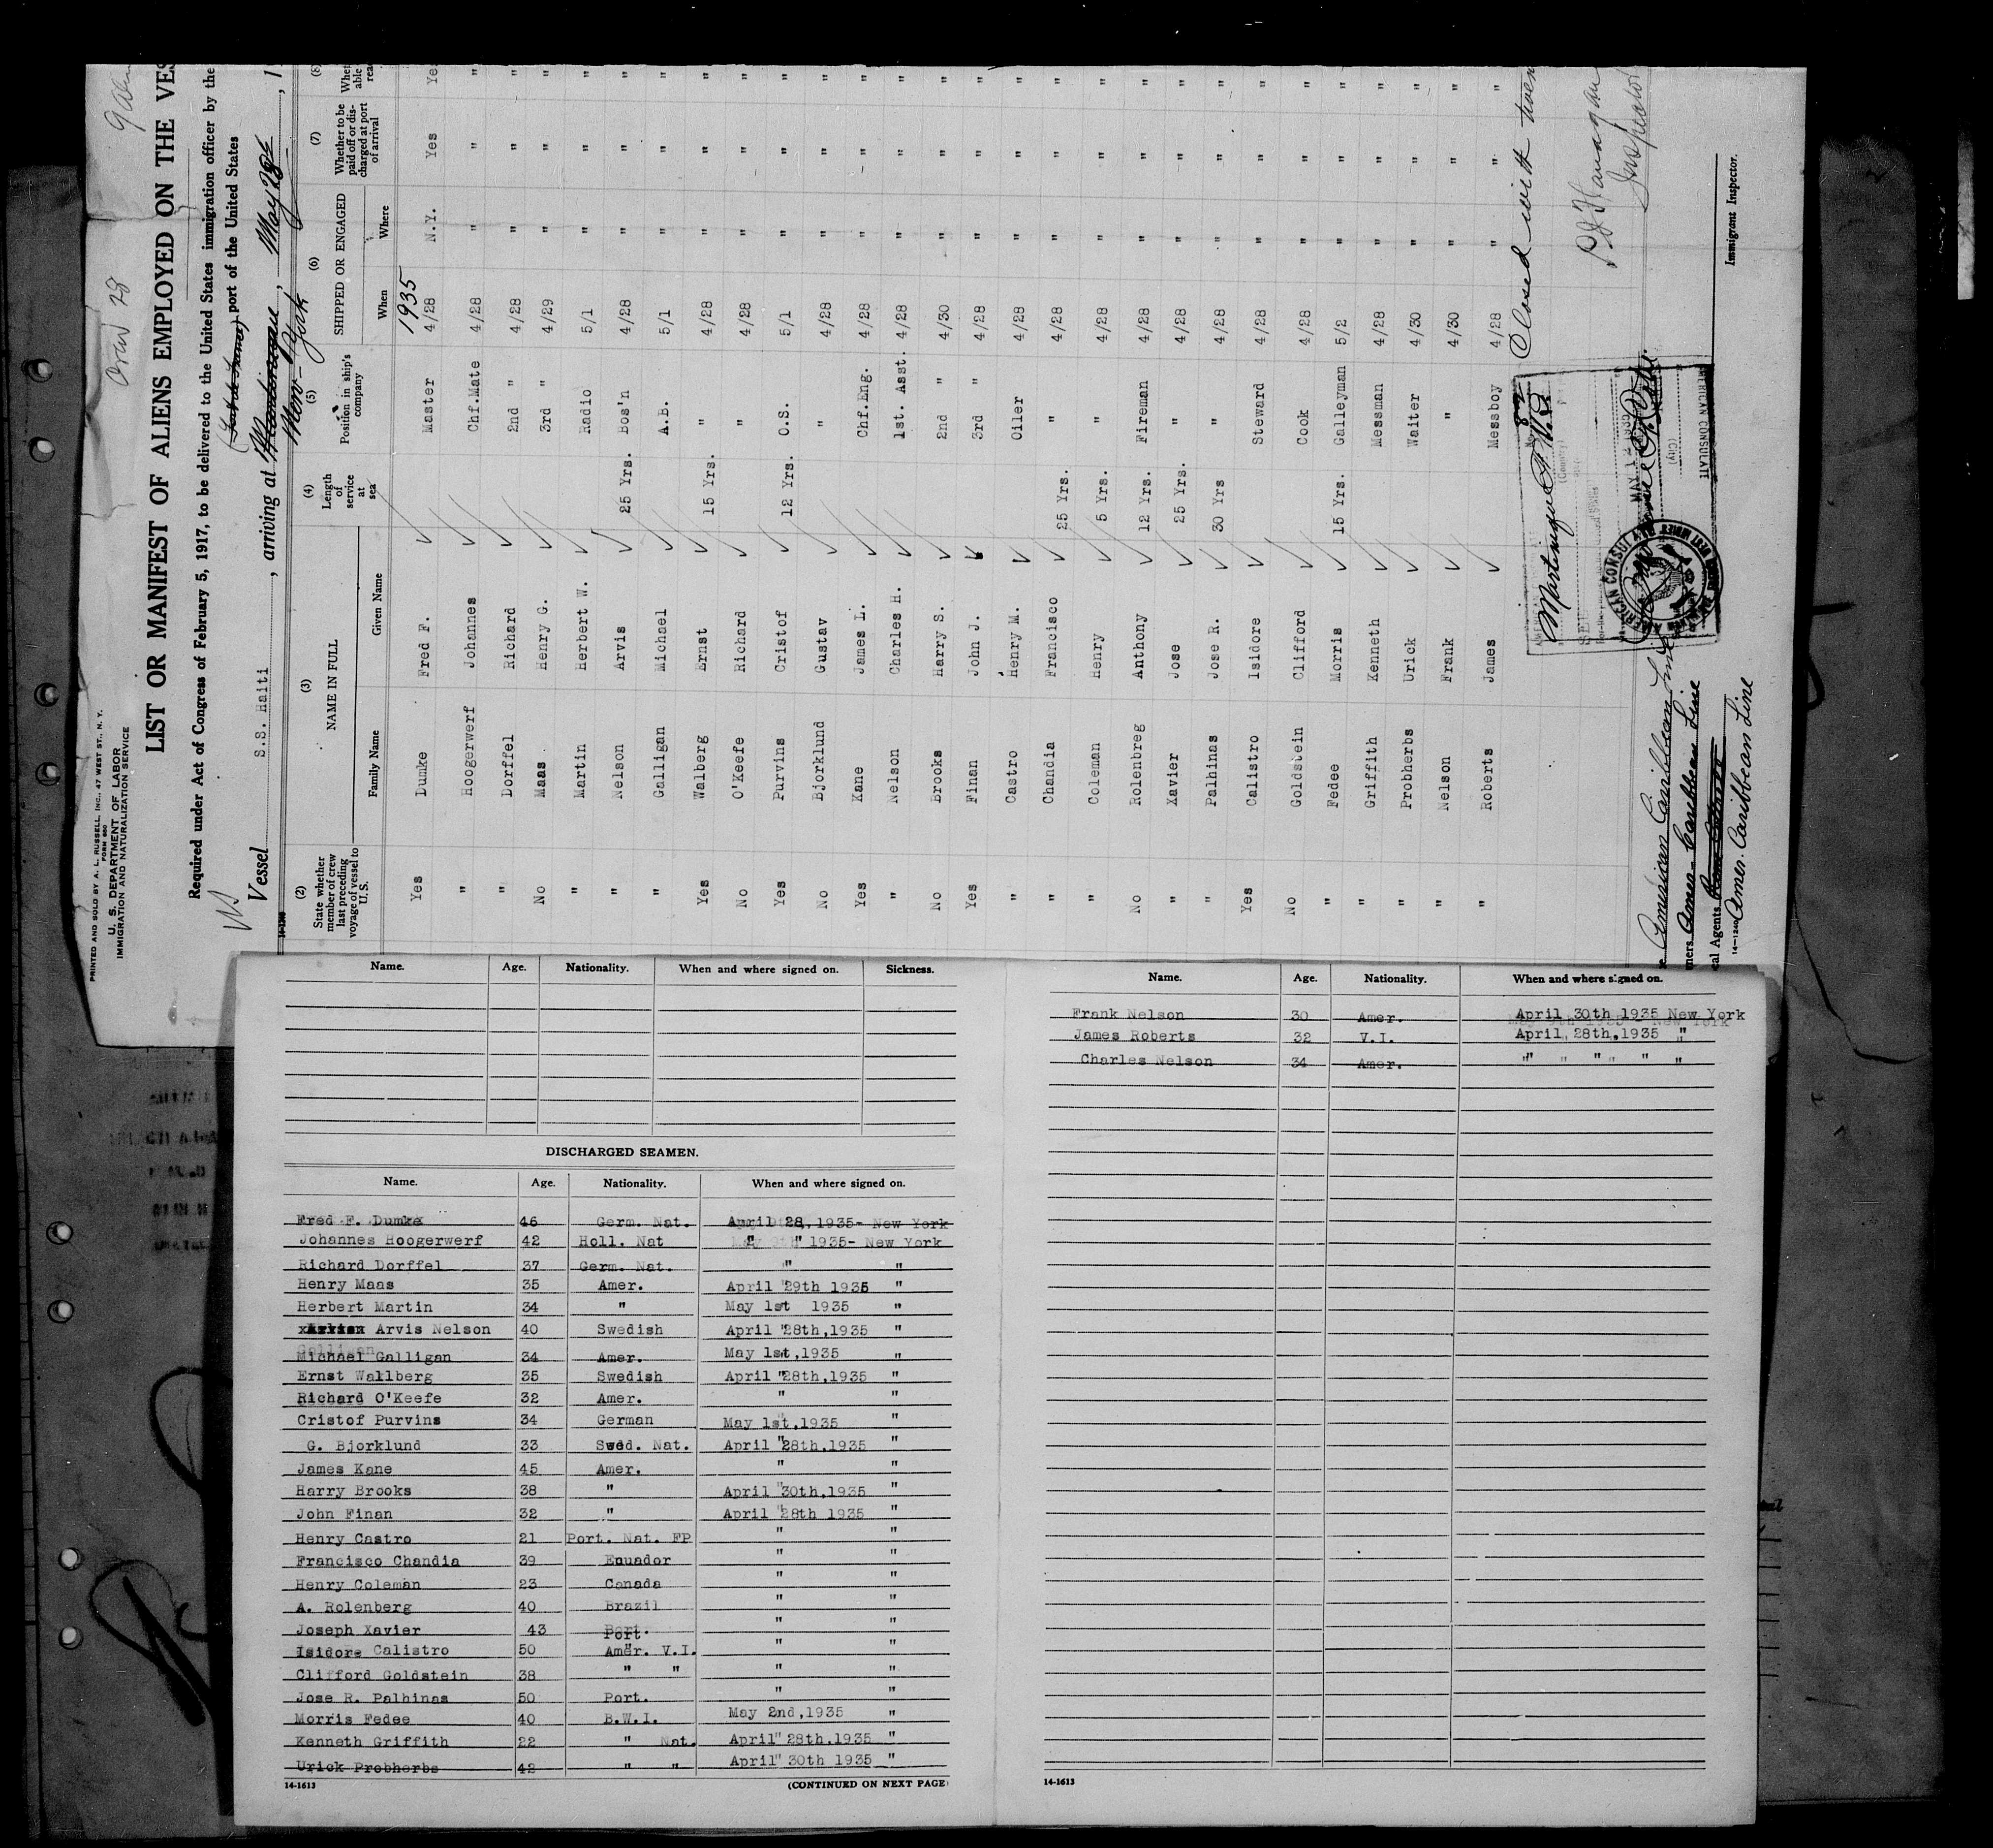 9 am
Drew 28
PRINTED AND SOLD BY A. L. RUSSELL, INC., 47 WEST ST., N. Y.
FORM 680
U. S. DEPARTMENT OF LABOR
IMMIGRATION AND NATURALIZATION SERVICE
LIST OR MANIFEST OF ALIENS EMPLOYED ON THE VES
Required under Act of Congress of February 5, 1917, to be delivered to the United States immigration officer by the
port of the United States
Vessel S.S. Haiti, arriving at New-York, May 28, 1
14-1240
(2) State whether member of crew last preceding voyage of vessel to U.S. (3) NAME IN FULL (4) Length of service at sea (5) Position in ship's company (6) SHIPPED OR ENGAGED (7) Whether to be paid off or discharged at port of arrival
Family Name Given Name When Where
1935
Yes Dumke Fred F. Master 4/28 N.Y. Yes Yes
" Hoogerwerf Johannes Chf.Mate 4/28 " " "
" Dorffel Richard 2nd " 4/28 " " "
No Maas Henry G. 3rd " 4/29 " " "
" Martin Herbert W. Radio 5/1 " " "
" Nelson Arvis 25 Yrs. Bos'n 4/28 " " "
" Galligan Michael A.B. 5/1 " " "
Yes Walberg Ernst 15 Yrs. " 4/28 " " "
No O'Keefe Richard " 4/28 " " "
Yes Purvins Cristof 12 Yrs. O.S. 5/1 " " "
No Bjorklund Gustav " 4/28 " " "
Yes Kane James L. Chf.Eng. 4/28 " " "
" Nelson Charles H. 1st. Asst. 4/28 " " "
No Brooks Harry S. 2nd " 4/30 " " "
Yes Finan John J. 3rd " 4/28 " " "
" Castro Henry M. Oiler 4/28 " " "
" Chandia Francisco 25 Yrs. " 4/28 " " "
" Coleman Henry 5 Yrs. " 4/28 " " "
No Rolenbreg Anthony 12 Yrs. Fireman 4/28 " " "
" Xavier Jose 25 Yrs. " 4/28 " " "
" Palhinas Jose R. 30 Yrs " 4/28 " " "
Yes Calistro Isidore Steward 4/28 " " "
No Goldstein Clifford Cook 4/28 " " "
" Fedee Morris 15 Yrs. Galleyman 5/2 " " "
" Griffith Kenneth Messman 4/28 " " "
" Probherbs Urick Waiter 4/30 " " "
" Nelson Frank " 4/30 " " "
" Roberts James Messboy 4/28 " " "
Closed with
Inspector
Immigrant Inspector.
Martinique F.W.I.
AMERICAN CONSULATE
(City)
American Caribbean Line
ners Amer-Caribbean Line
cal Agents
14-1240 Amer. Caribbean Line
Name. Age. Nationality. When and where signed on. Sickness.
DISCHARGED SEAMEN.
Name. Age. Nationality. When and where signed on.
Fred F. Dumke 46 Germ. Nat. April 28, 1935- New York
Johannes Hoogerwerf 42 Holl. Nat " " 1935- New York
Richard Dorffel 37 Germ. Nat. " "
Henry Maas 35 Amer. April 29th 1935 "
Herbert Martin 34 " May 1st 1935 "
Arvis Nelson 40 Swedish April 28th,1935 "
Michael Galligan 34 Amer. May 1st,1935 "
Ernst Wallberg 35 Swedish April 28th,1935 "
Richard O'Keefe 32 Amer. " "
Cristof Purvins 34 German May 1st,1935 "
G. Bjorklund 33 Swed. Nat. April 28th,1935 "
James Kane 45 Amer. " "
Harry Brooks 38 " April 30th,1935 "
John Finan 32 " April 28th 1935 "
Henry Castro 21 Port. Nat. FP " "
Francisco Chandia 39 Enuador " "
Henry Coleman 23 Canada " "
A. Rolenberg 40 Brazil " "
Joseph Xavier 43 Port. " "
Isidore Calistro 50 Amer. V.I. " "
Clifford Goldstein 38 " " " "
Jose R. Palhinas 50 Port. " "
Morris Fedee 40 B.W.I. May 2nd,1935 "
Kenneth Griffith 22 " Nat. April 28th,1935 "
Urick Probherbs 42 " " April 30th 1935 "
14-1613 (CONTINUED ON NEXT PAGE)
Name. Age. Nationality. When and where signed on.
Frank Nelson 30 Amer. April 30th 1935 New York
James Roberts 32 V.I. April 28th,1935 "
Charles Nelson 34 Amer. " " " "
14-1613